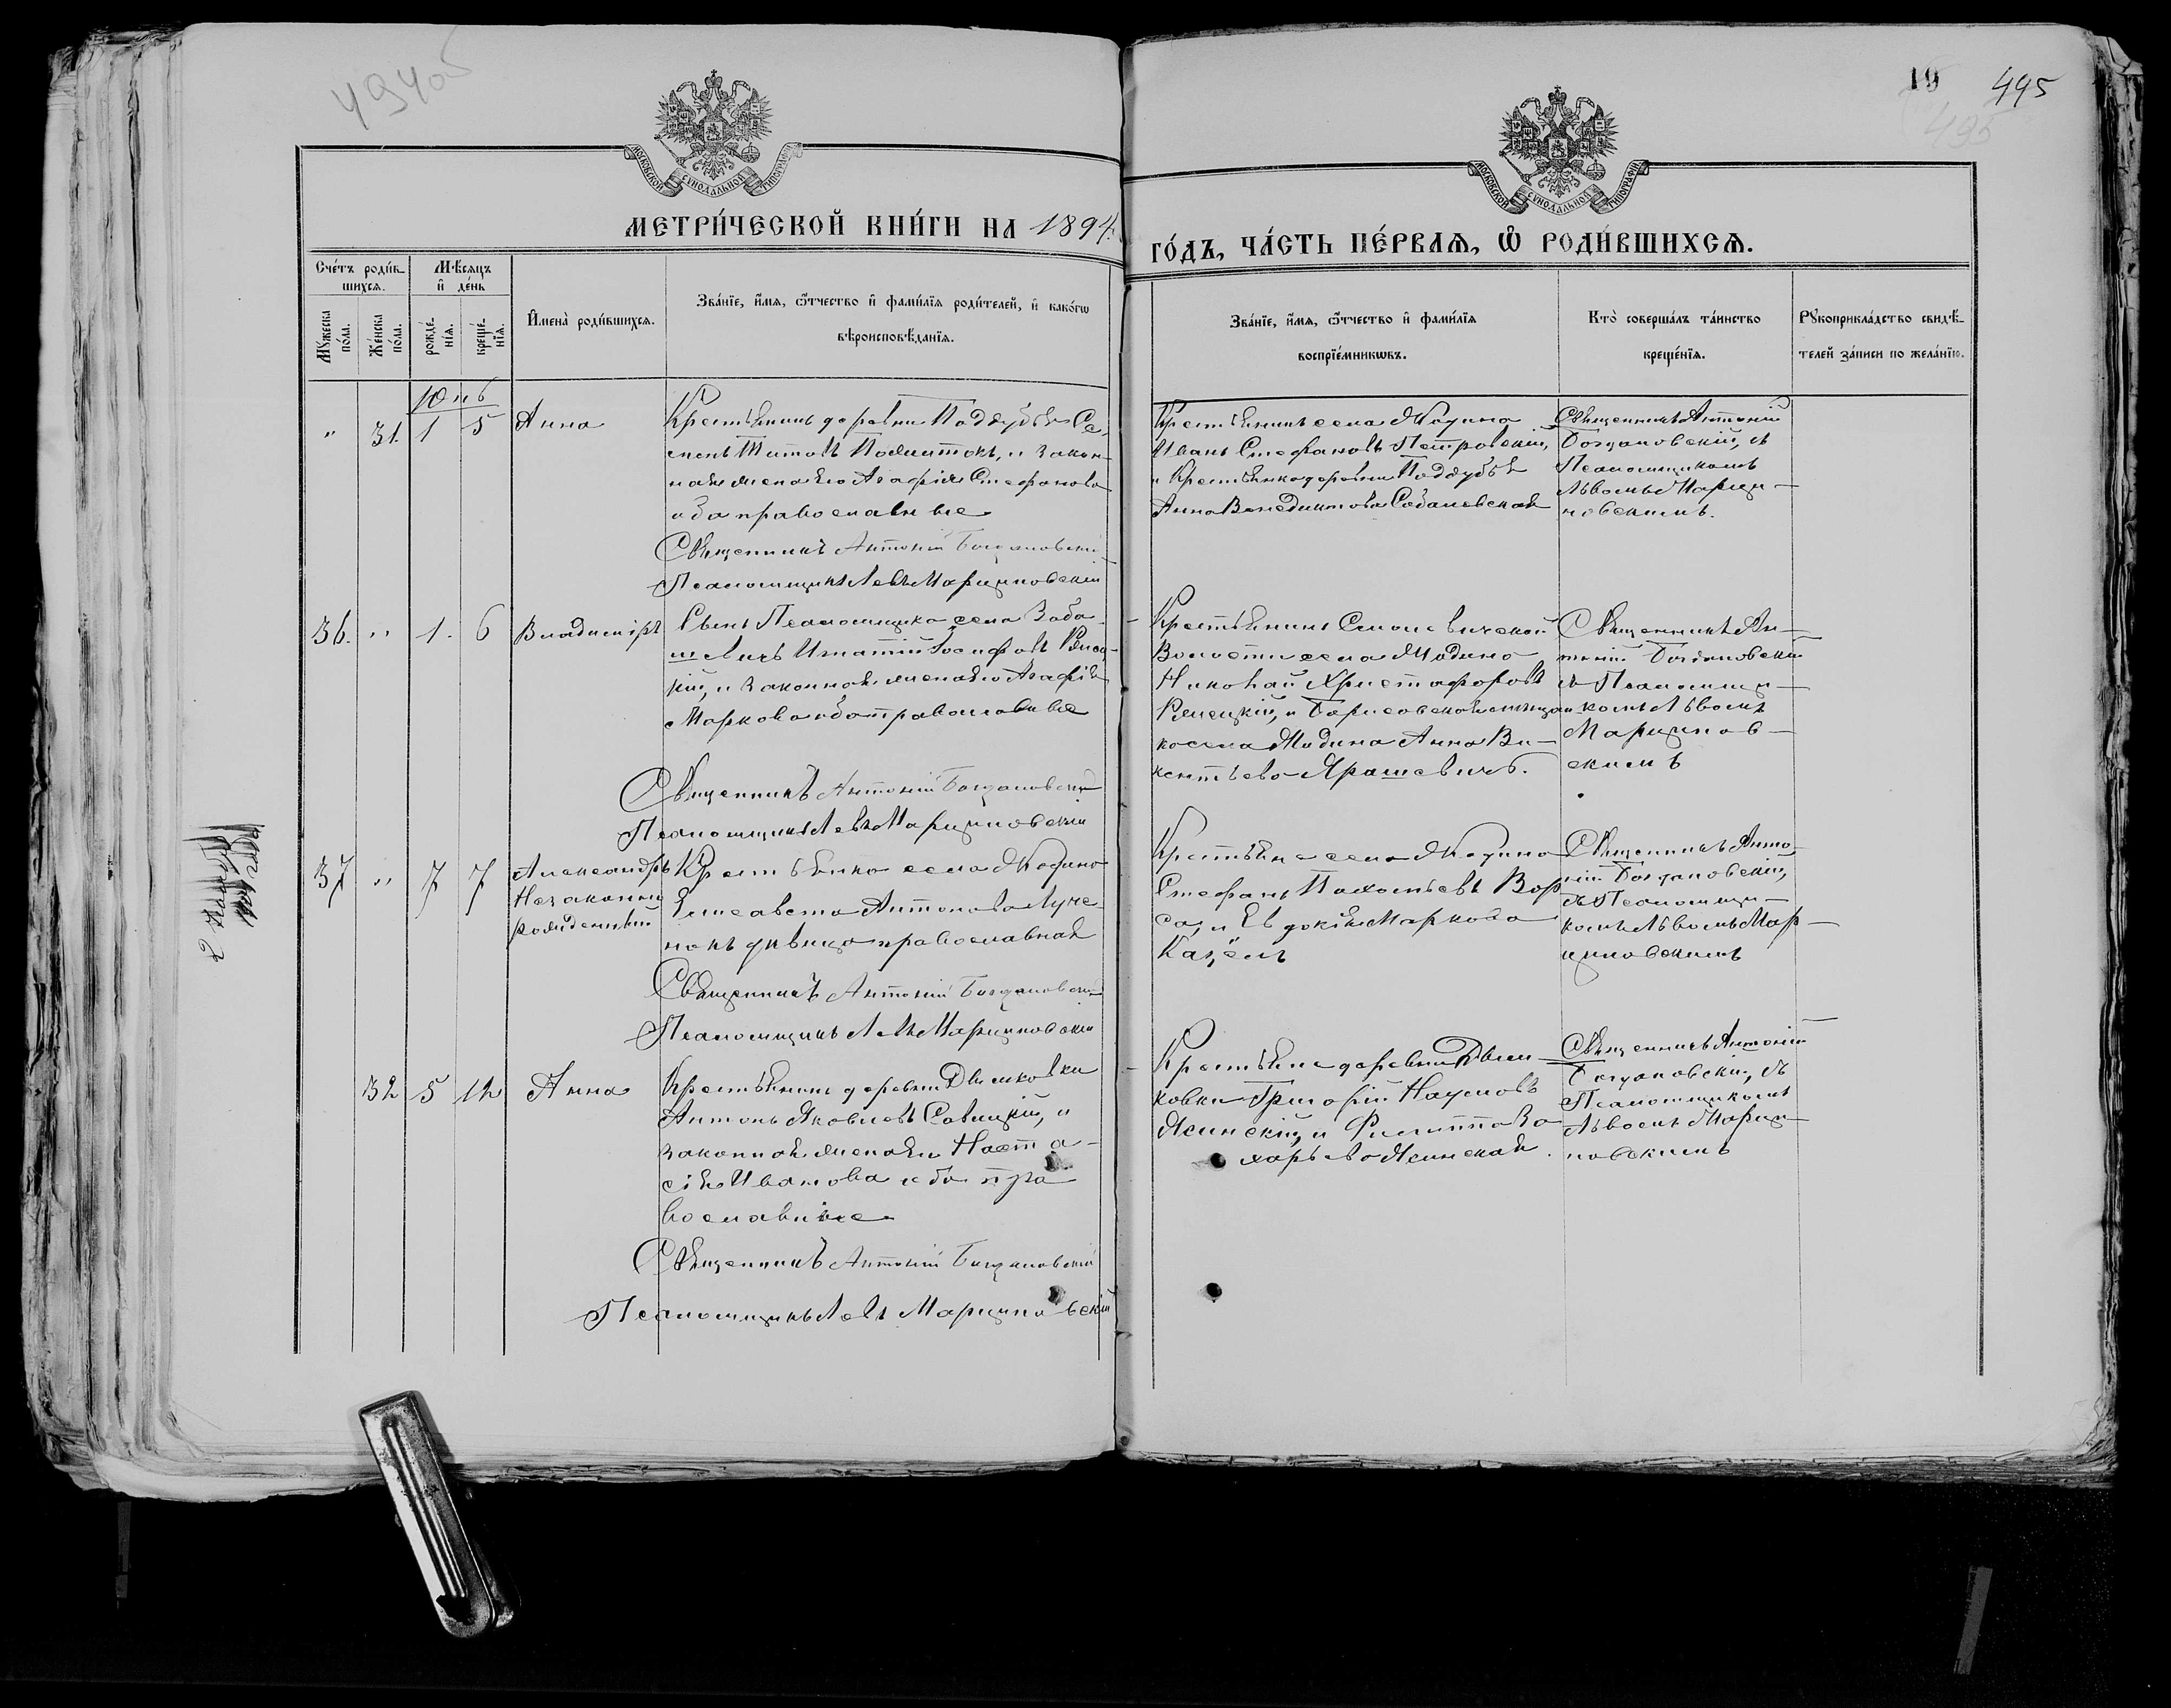 494об
19 495
495
МОСКОВСКОЙ СѴНОДАЛЬНОЙ ТИПОГРАФІИ
МОСКОВСКОЙ СѴНОДАЛЬНОЙ ТИПОГРАФІИ
МЕТРИ́ЧЕСКОЙ КНИ́ГИ НА 1894
ГО́ДЪ, ЧА́СТЬ ПЕ́РВАѦ, Ѡ҆ РОДИ́ВШИХСѦ.
Сче́тъ роди́в-
шихсѧ.
Мѣ́сѧцъ
и҆ де́нь
Мꙋ́жеска
по́ла.
Же́нска
по́ла.
рожде́-
нїѧ.
креще́-
нїѧ.
И҆мена̀ роди́вшихсѧ.
Зва́нїе, и҆́мѧ, ѻ҆́тчество и҆ фами́лїѧ роди́телей, и҆ како́гѡ
вѣроисповѣ́данїѧ.
Зва́нїе, и҆́мѧ, ѻ҆́тчество и҆ фами́лїѧ
воспрїе́мникѡвъ.
Кто̀ соверша́лъ та́инство
креще́нїѧ.
Рꙋкоприкла́дство свидѣ́-
телей за́писи по жела́нїю.
Юнь
" 31. 1 5 Анна
Крестьянинъ деревни Поддубья Се-
менъ Титовъ, и закон-
ная жена его Агафія Стефанова
оба православные
Священникъ Антоній Богдановскій
Псаломщикъ Левъ Марциновскій
Крестьянинъ села Жодина
Иванъ Стефановъ Петровскій,
и Крестьянка деревни Поддубья
Анна Венедиктова Собалевская
Священникъ Антоній
Богдановскій, съ
Псаломщикомъ
Львомъ Марци-
новскимъ.
36. " 1. 6 Владиміръ
Сынъ Псаломщика села Заба-
шевичъ Игнатій Іосифовъ
и законной жены его Агафіи
Маркова оба православные
Священникъ Антоній Богдановскій
Псаломщикъ Левъ Марциновскій
Крестьянинъ
Волости села Жодина
Николай Христофоровъ
и Борисовская мѣщан-
ка села Жодина Анна Ви-
кентьева Ярашевичъ.
Священникъ Ан-
тоній Богдановскій
съ Псаломщи-
комъ Львомъ
Марцинов-
скимъ
37 " 7 7 Александръ
Незаконно
рожденный
Крестьянка села Жодино
Елисавета Антонова Луче-
нокъ дѣвица православная
Священникъ Антоній Богдановскій
Псаломщикъ Левъ Марциновскій
Крестьяне села Жодино
Стефанъ Пахомьевъ
и Евдокія Маркова
Козелъ
Священникъ Анто-
ній Богдановскій,
съ Псаломщи-
комъ Львомъ Мар-
циновскимъ
32 5 12 Анна
Крестьянинъ деревни Дымковки
Антонъ Яковлевъ Савицкій, и
законная жена его Наста-
сія Иванова оба пра-
вославные
Священникъ Антоній Богдановскій
Псаломщикъ Левъ Марциновскій
Крестьяне деревни Дым-
ковки Григорій Наумовъ
Ясинскій, и За-
харьева Ясинская.
Священникъ Антоній
Богдановскій, съ
Псаломщикомъ
Львомъ Марци-
новскимъ